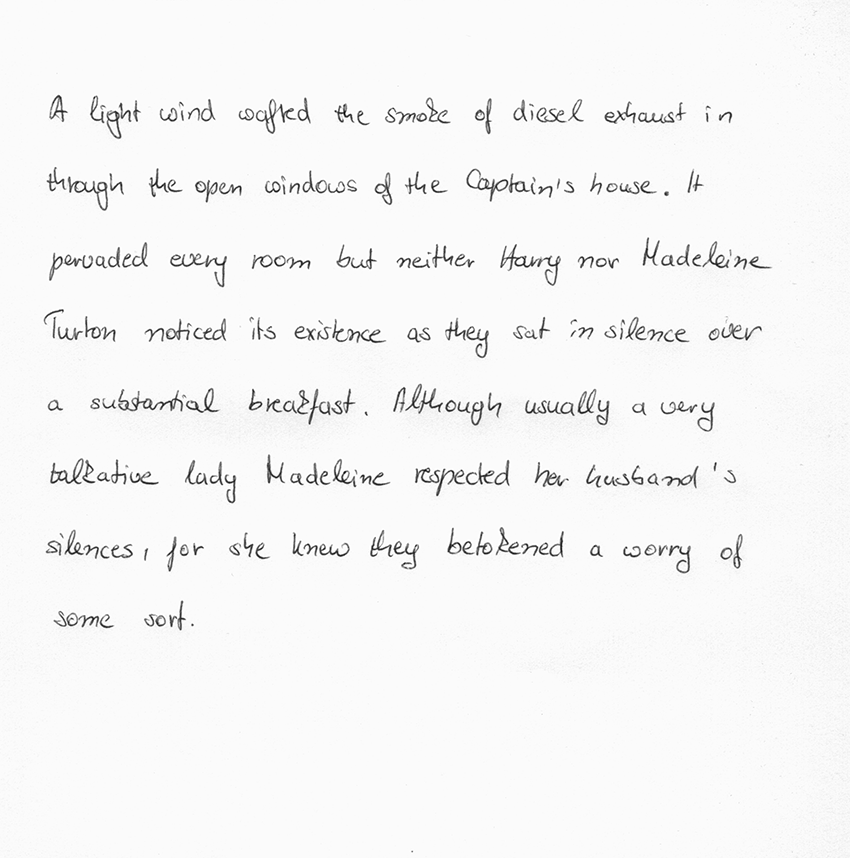 A light wind wafted the smoke of diesel exhaust in
through the open windows of the Captain's house. It
pervaded every room but neither Harry nor Madeleine
Turton noticed its existence as they sat in silence over
a substantial breakfast. Although usually a very
talkative lady Madeleine respected her husband's
silences, for she knew they betokened a worry of
some sort.